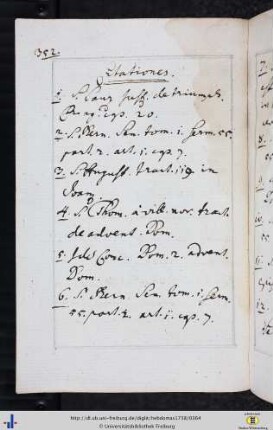 352.
Citationes.
1. S. Laur. Just. de triumph.
Chr. ag. cap. 20.
2. S. Bern. Sen. tom. i. serm. 55.
part. 2. art. i. cap. 7.
3. S. August. tract. 119 in
Joan.
4. S. Thom. à vill. nov. tract.
de advent. Dom.
5. Idem Conc. Dom. 2. advent.
Dom.
6. S. Bern. Sen. tom. i. serm.
55. part. 2. art. i. cap. 7.
http://dl.ub.uni-freiburg.de/diglit/hebdomas1738/0364
© Universitätsbibliothek Freiburg